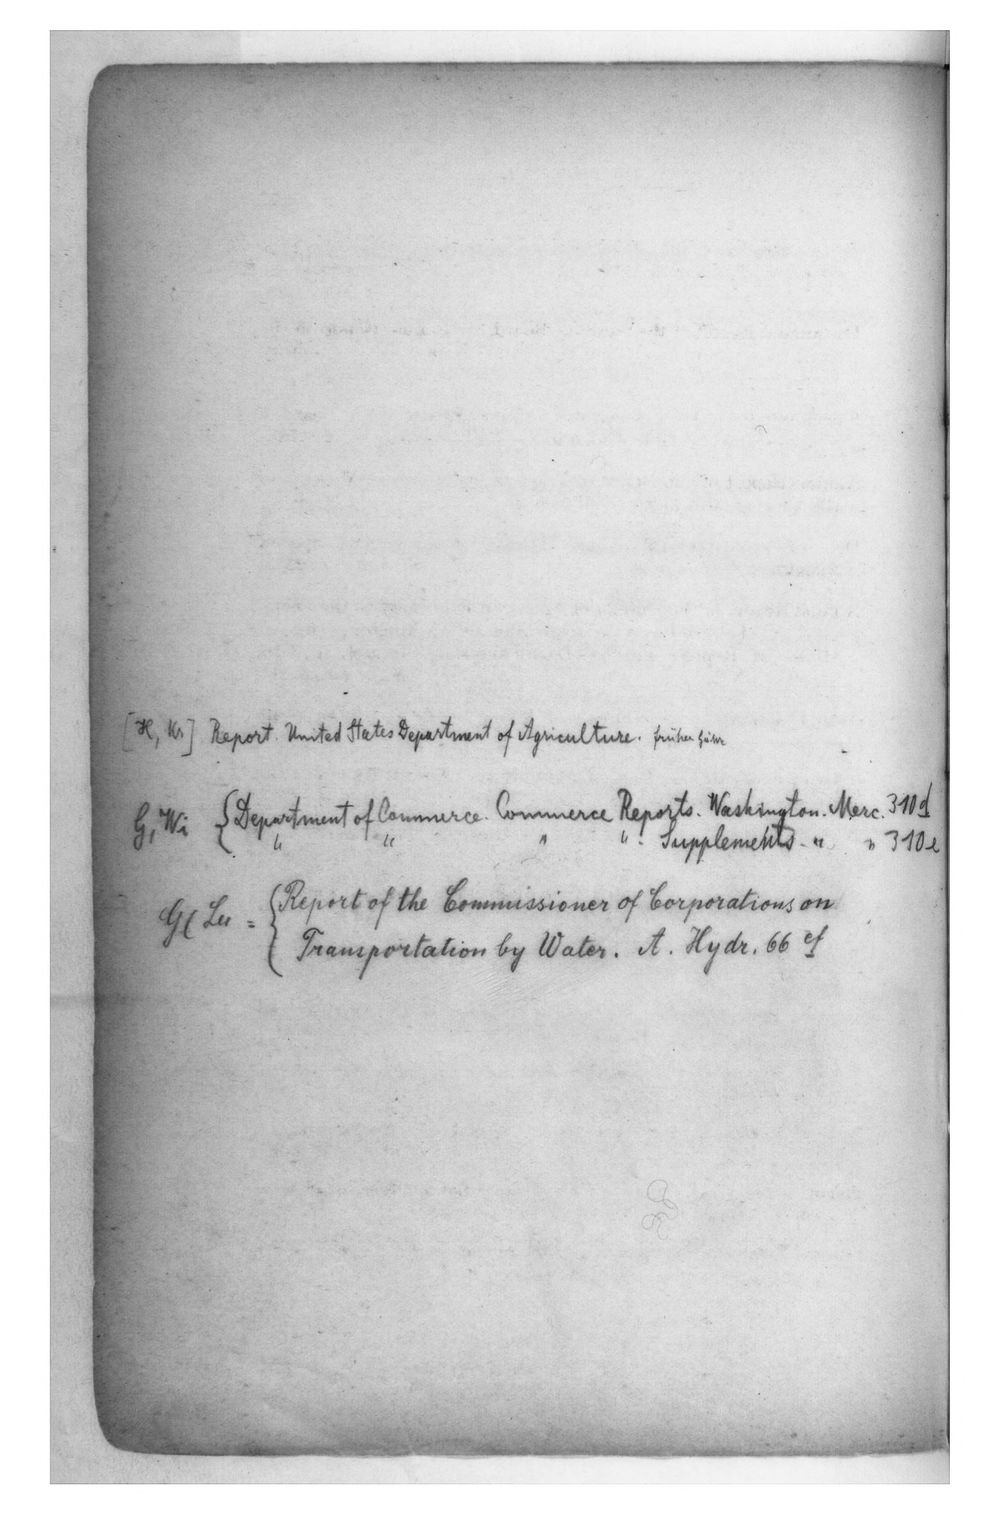 [H, Kr] Report. United States Department of Agriculture. früher
G, Wi { Department of Commerce. Commerce Reports. Washington. Merc. 310d
" " " ". Supplements - " " 310e
G( Lu = { Report of the Commissioner of Corporations on
Transportation by Water. A. Hydr. 66 ef